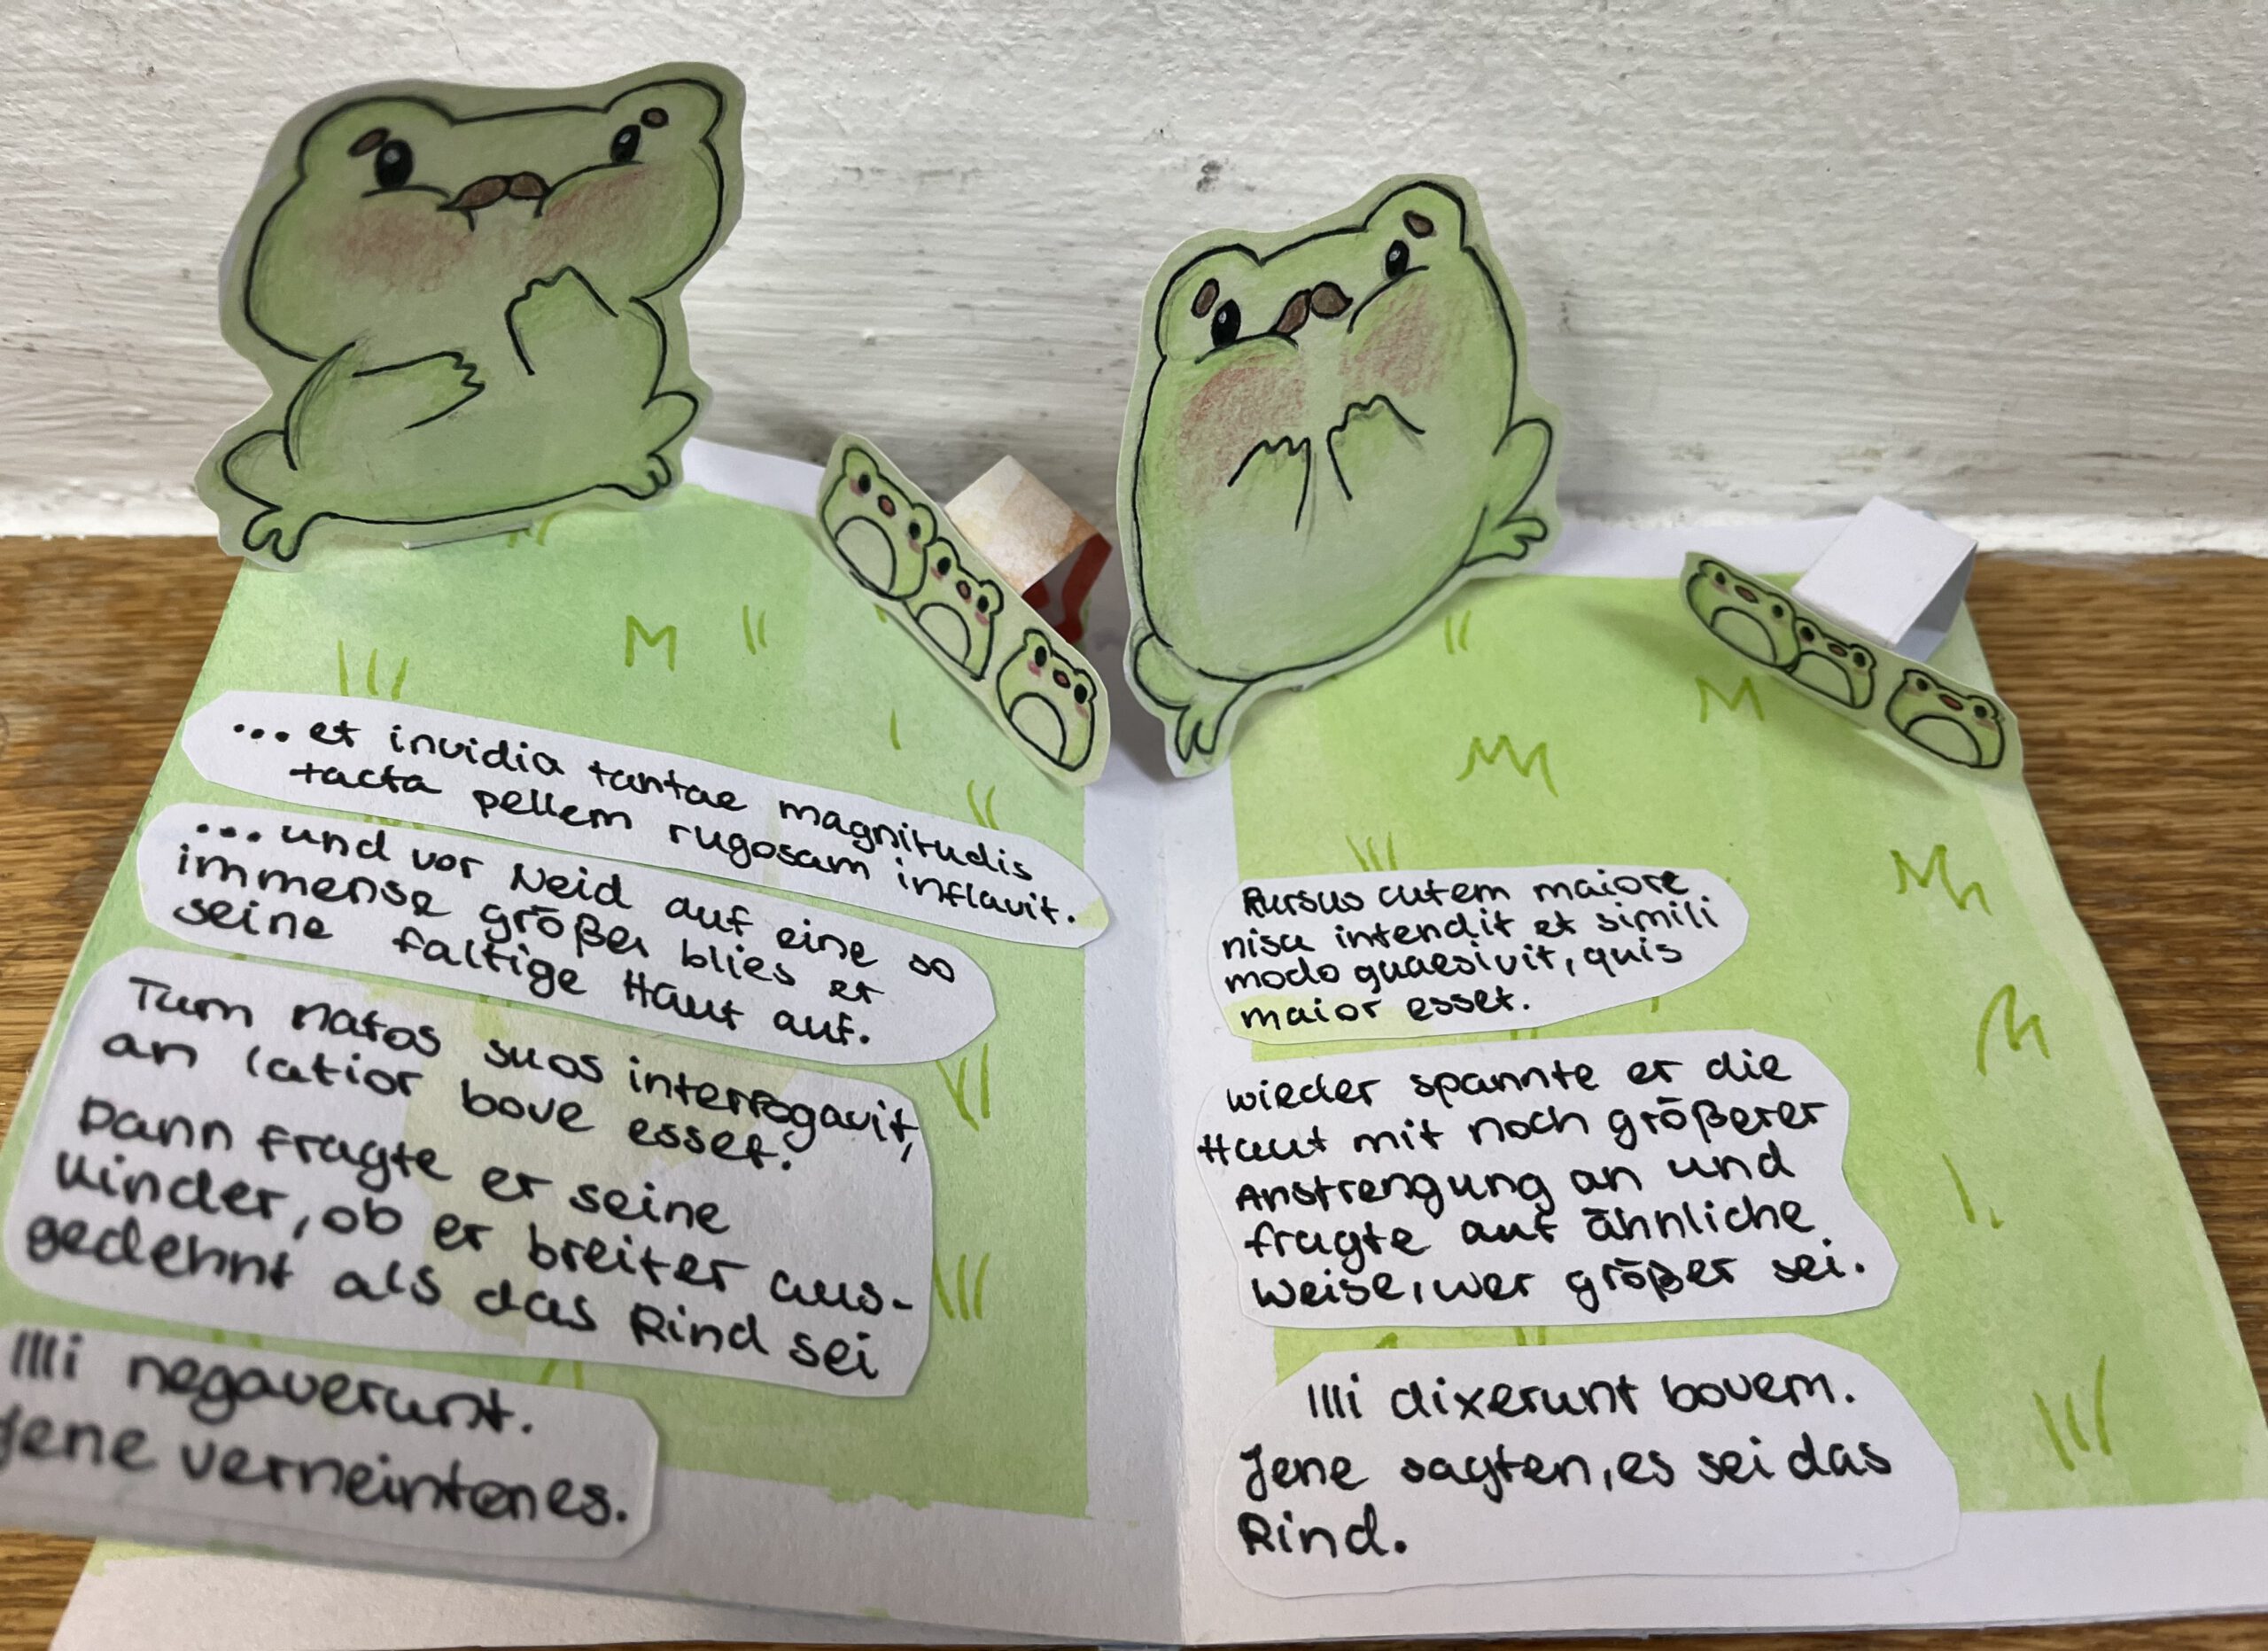 ...et invidia tantae magnitudis
tacta pellem rugosam inflavit.
...und vor Neid auf eine so
immense größer blies er
seine faltige Haut auf.
Tum natos suos interrogavit,
an latior bove esset.
Dann fragte er seine
Kinder, ob er breiter aus-
gedehnt als das Rind sei
Illi negaverunt.
Jene verneinten es.
Rursus cutem maiore
nisu intendit et simili
modo quaesivit, quis
maior esset.
wieder spannte er die
Haut mit noch größerer
Anstrengung an und
fragte auf ähnliche
Weise, wer größer sei.
Illi dixerunt bovem.
Jene sagten, es sei das
Rind.